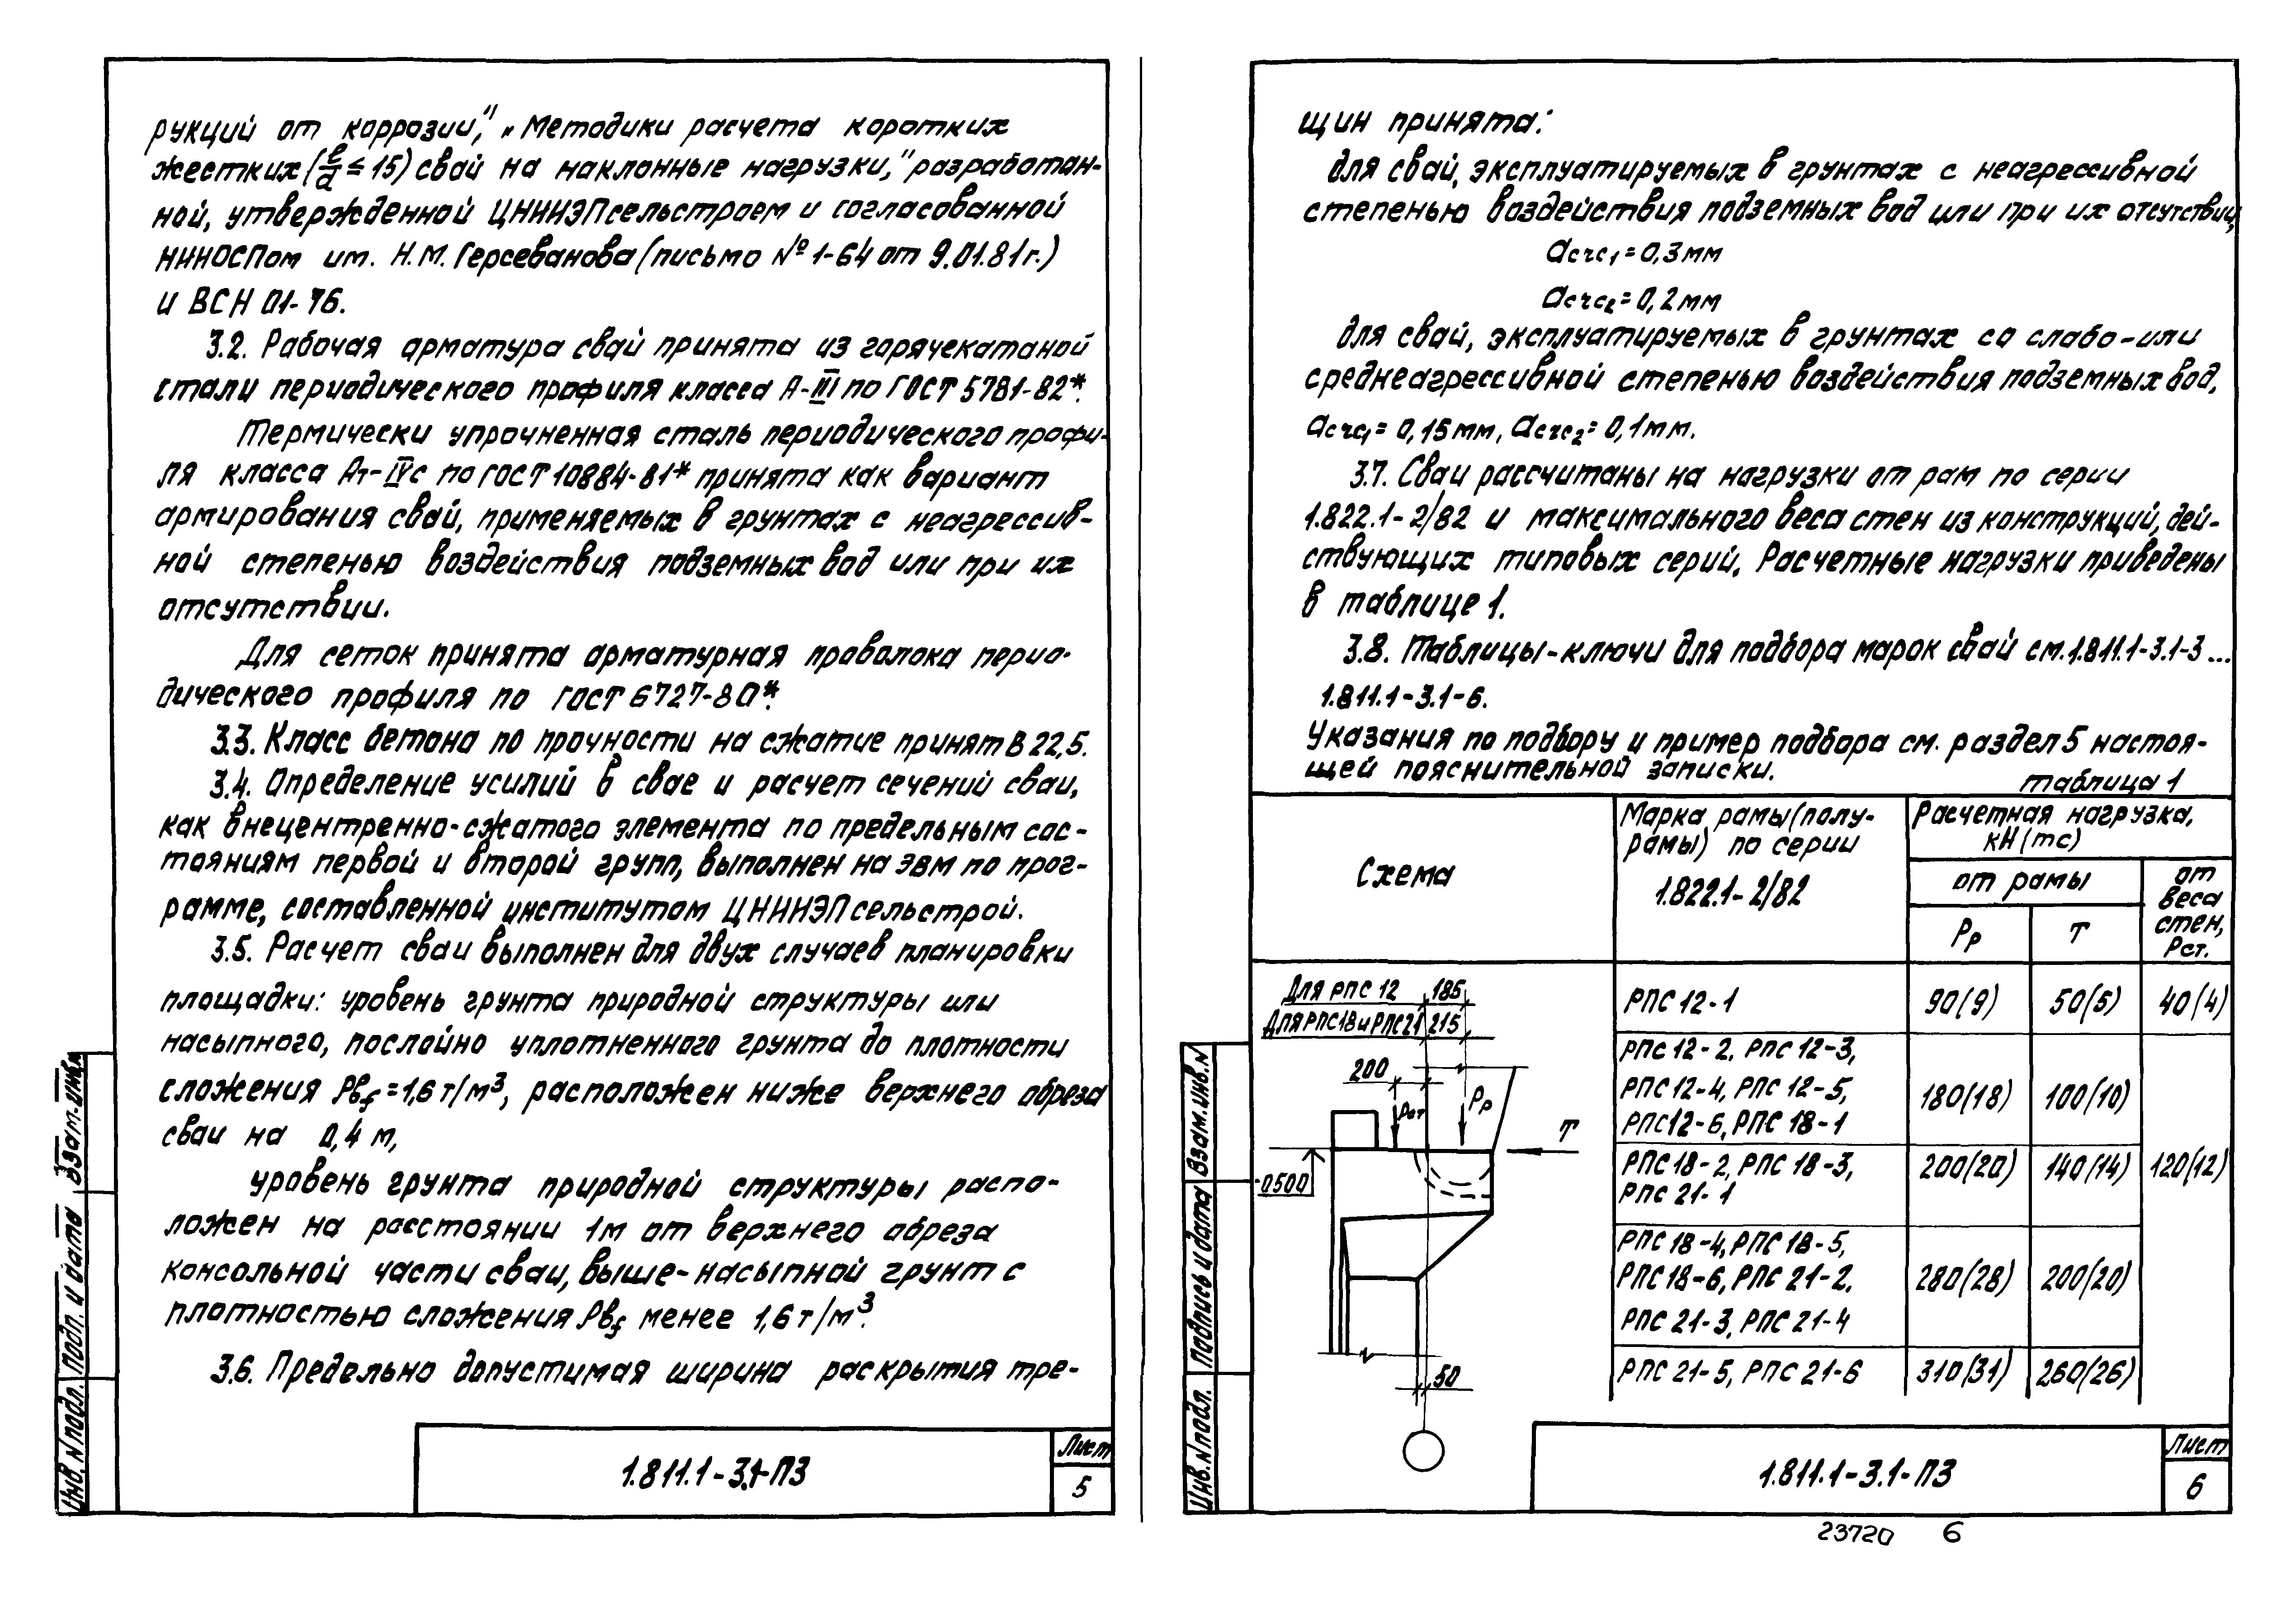 рукций от коррозии," „Методики расчета коротких
жестких (ℓ/d ≤ 15) свай на наклонные нагрузки," разработан-
ной, утвержденной ЦНИИЭПсельстроем и согласованной
НИИОСПом им. Н.М. Герсеванова (письмо № 1-64 от 9.01.81г.)
и ВСН 01-76.
3.2. Рабочая арматура свай принята из горячекатаной
стали периодического профиля класса А-III по ГОСТ 5781-82*.
Термически упрочненная сталь периодического профи-
ля класса Ат-IVс по ГОСТ 10884-81* принята как вариант
армирования свай, применяемых в грунтах с неагрессив-
ной степенью воздействия подземных вод или при их
отсутствии.
Для сеток принята арматурная проволока перио-
дического профиля по ГОСТ 6727-80*.
3.3. Класс бетона по прочности на сжатие принят В 22,5.
3.4. Определение усилий в свае и расчет сечений сваи,
как внецентренно-сжатого элемента по предельным сос-
тояниям первой и второй групп, выполнен на ЭВМ по прог-
рамме, составленной институтом ЦНИИЭПсельстрой.
3.5. Расчет сваи выполнен для двух случаев планировки
площадки: уровень грунта природной структуры или
насыпного, послойно уплотненного грунта до плотности
сложения Рвf = 1,6 т/м³, расположен ниже верхнего обреза
сваи на 0,4 м,
уровень грунта природной структуры распо-
ложен на расстоянии 1м от верхнего обреза
консольной части сваи, выше-насыпной грунт с
плотностью сложения Рвf менее 1,6 т/м³.
3.6. Предельно допустимая ширина раскрытия тре-
1.811.1-3.1-ПЗ
Лист
5
Инв. N подл.
Подп. и дата
Взам. инв. N
щин принята:
для свай, эксплуатируемых в грунтах с неагрессивной
степенью воздействия подземных вод или при их отсутствии,
acrc1 = 0,3 мм
acrc2 = 0,2 мм
для свай, эксплуатируемых в грунтах со слабо-или
среднеагрессивной степенью воздействия подземных вод,
acrc1 = 0,15 мм, acrc2 = 0,1 мм.
3.7. Сваи рассчитаны на нагрузки от рам по серии
1.822.1-2/82 и максимального веса стен из конструкций, дей-
ствующих типовых серий. Расчетные нагрузки приведены
в таблице 1.
3.8. Таблицы-ключи для подбора марок свай см. 1.811.1-3.1-3 ...
1.811.1-3.1-6.
Указания по подбору и пример подбора см. раздел 5 настоя-
щей пояснительной записки.
таблица 1
Схема
Марка рамы (полу-
рамы) по серии
1.822.1-2/82
Расчетная нагрузка,
кН (тс)
от рамы
от
веса
стен,
Рст.
Рр
Т
РПС 12-1
90(9)
50(5)
40(4)
РПС 12-2, РПС 12-3,
РПС 12-4, РПС 12-5,
РПС 12-6, РПС 18-1
180(18)
100(10)
РПС 18-2, РПС 18-3,
РПС 21-1
200(20)
140(14)
120(12)
РПС 18-4, РПС 18-5,
РПС 18-6, РПС 21-2,
РПС 21-3, РПС 21-4
280(28)
200(20)
РПС 21-5, РПС 21-6
310(31)
260(26)
Для РПС 12
185
Для РПС18 и РПС21
215
200
Рст
Рр
Т
-0.500
50
1.811.1-3.1-ПЗ
Лист
6
Инв. N подл.
Подпись и дата
Взам. инв. N
23720 6